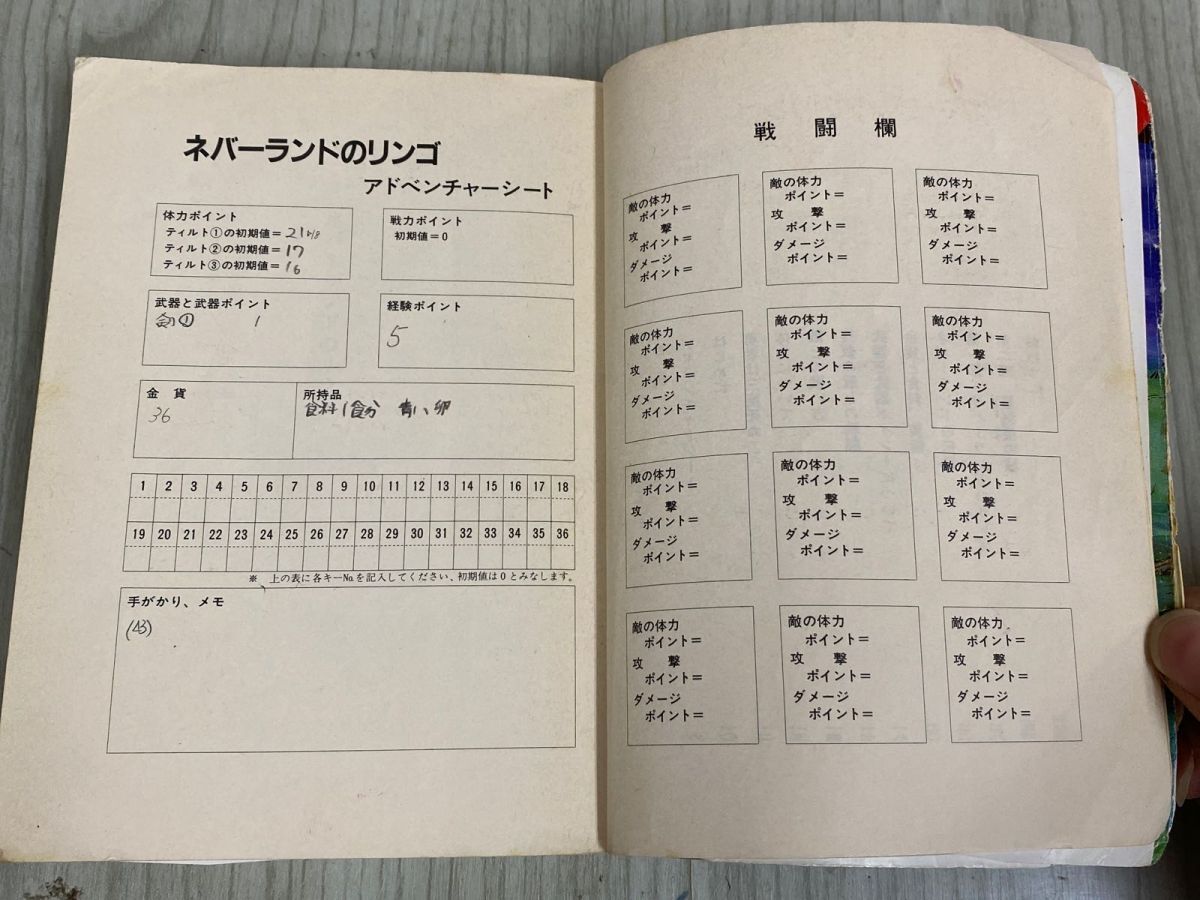 ネバーランドのリンゴ
アドベンチャーシート
体力ポイント
ティルト①の初期値=21
ティルト②の初期値=17
ティルト③の初期値=16
戦力ポイント
初期値=0
武器と武器ポイント
剣① 1
経験ポイント
5
金貨
36
所持品
食料1食分 青い卵
1 2 3 4 5 6 7 8 9 10 11 12 13 14 15 16 17 18
19 20 21 22 23 24 25 26 27 28 29 30 31 32 33 34 35 36
※ 上の表に各キーNo.を記入してください、初期値は0とみなします。
手がかり、メモ
(43)
戦闘欄
敵の体力
ポイント=
攻撃
ポイント=
ダメージ
ポイント=
敵の体力
ポイント=
攻撃
ポイント=
ダメージ
ポイント=
敵の体力
ポイント=
攻撃
ポイント=
ダメージ
ポイント=
敵の体力
ポイント=
攻撃
ポイント=
ダメージ
ポイント=
敵の体力
ポイント=
攻撃
ポイント=
ダメージ
ポイント=
敵の体力
ポイント=
攻撃
ポイント=
ダメージ
ポイント=
敵の体力
ポイント=
攻撃
ポイント=
ダメージ
ポイント=
敵の体力
ポイント=
攻撃
ポイント=
ダメージ
ポイント=
敵の体力
ポイント=
攻撃
ポイント=
ダメージ
ポイント=
敵の体力
ポイント=
攻撃
ポイント=
ダメージ
ポイント=
敵の体力
ポイント=
攻撃
ポイント=
ダメージ
ポイント=
敵の体力
ポイント=
攻撃
ポイント=
ダメージ
ポイント=